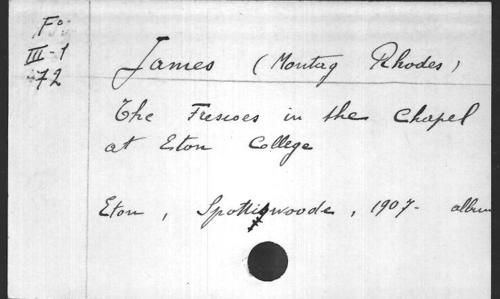 Fo.
III-1
72
James (Montag Rhodes)
The Frescoes in the Chapel
at Eton College
Eton, Spottiswoode, 1907 - album